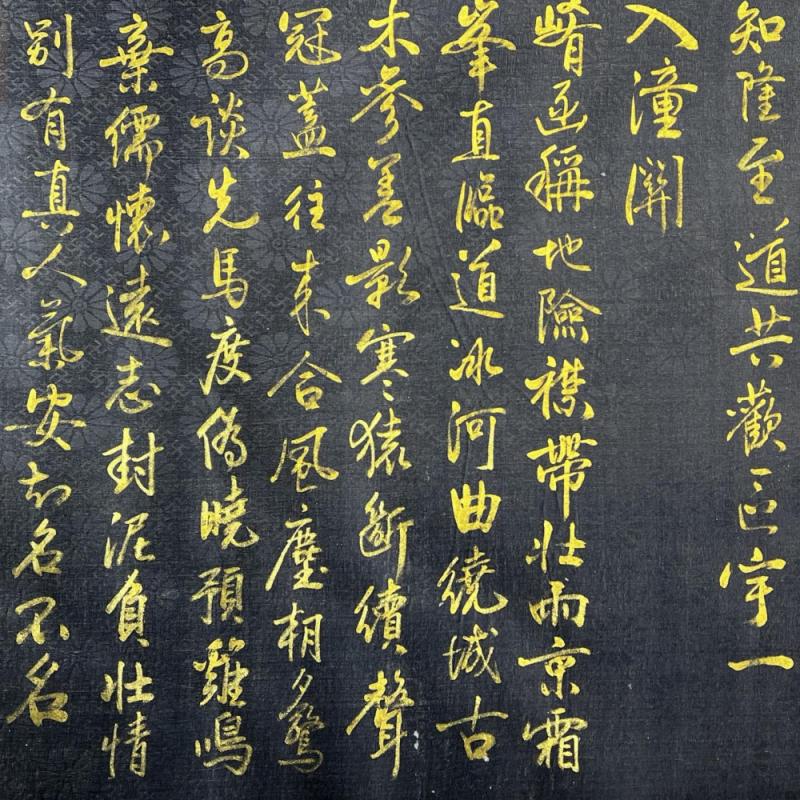 知隆至道共歡區宇一
入潼關
崤函稱地險襟帶壯兩京霜
峯直臨道冰河曲繞城古
木參差影寒猿斷續聲
冠蓋往來合風塵朝夕驚
高談先馬度偽曉預雞鳴
棄儒懷遠志封泥負壯情
別有真人氣安知名不名